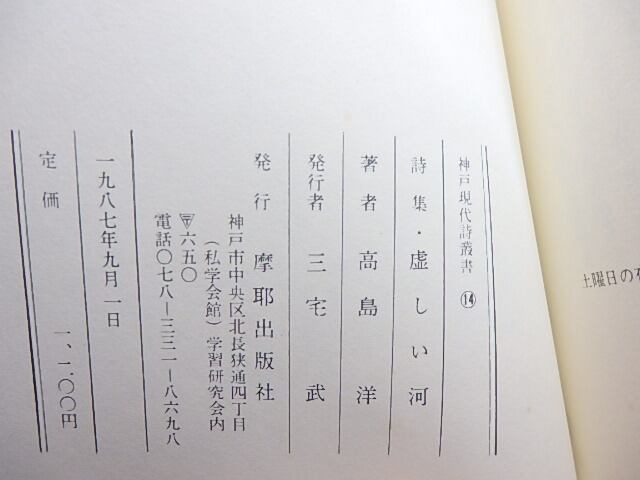 土曜日の
神戸現代詩叢書 ⑭
詩集・虚しい河
著者 高島洋
発行者 三宅武
発行 摩耶出版社
神戸市中央区北長狭通四丁目
(私学会館)学習研究会内
〒六五〇
電話〇七八ー三三一ー八六九八
一九八七年九月一日
定価 一、二〇〇円